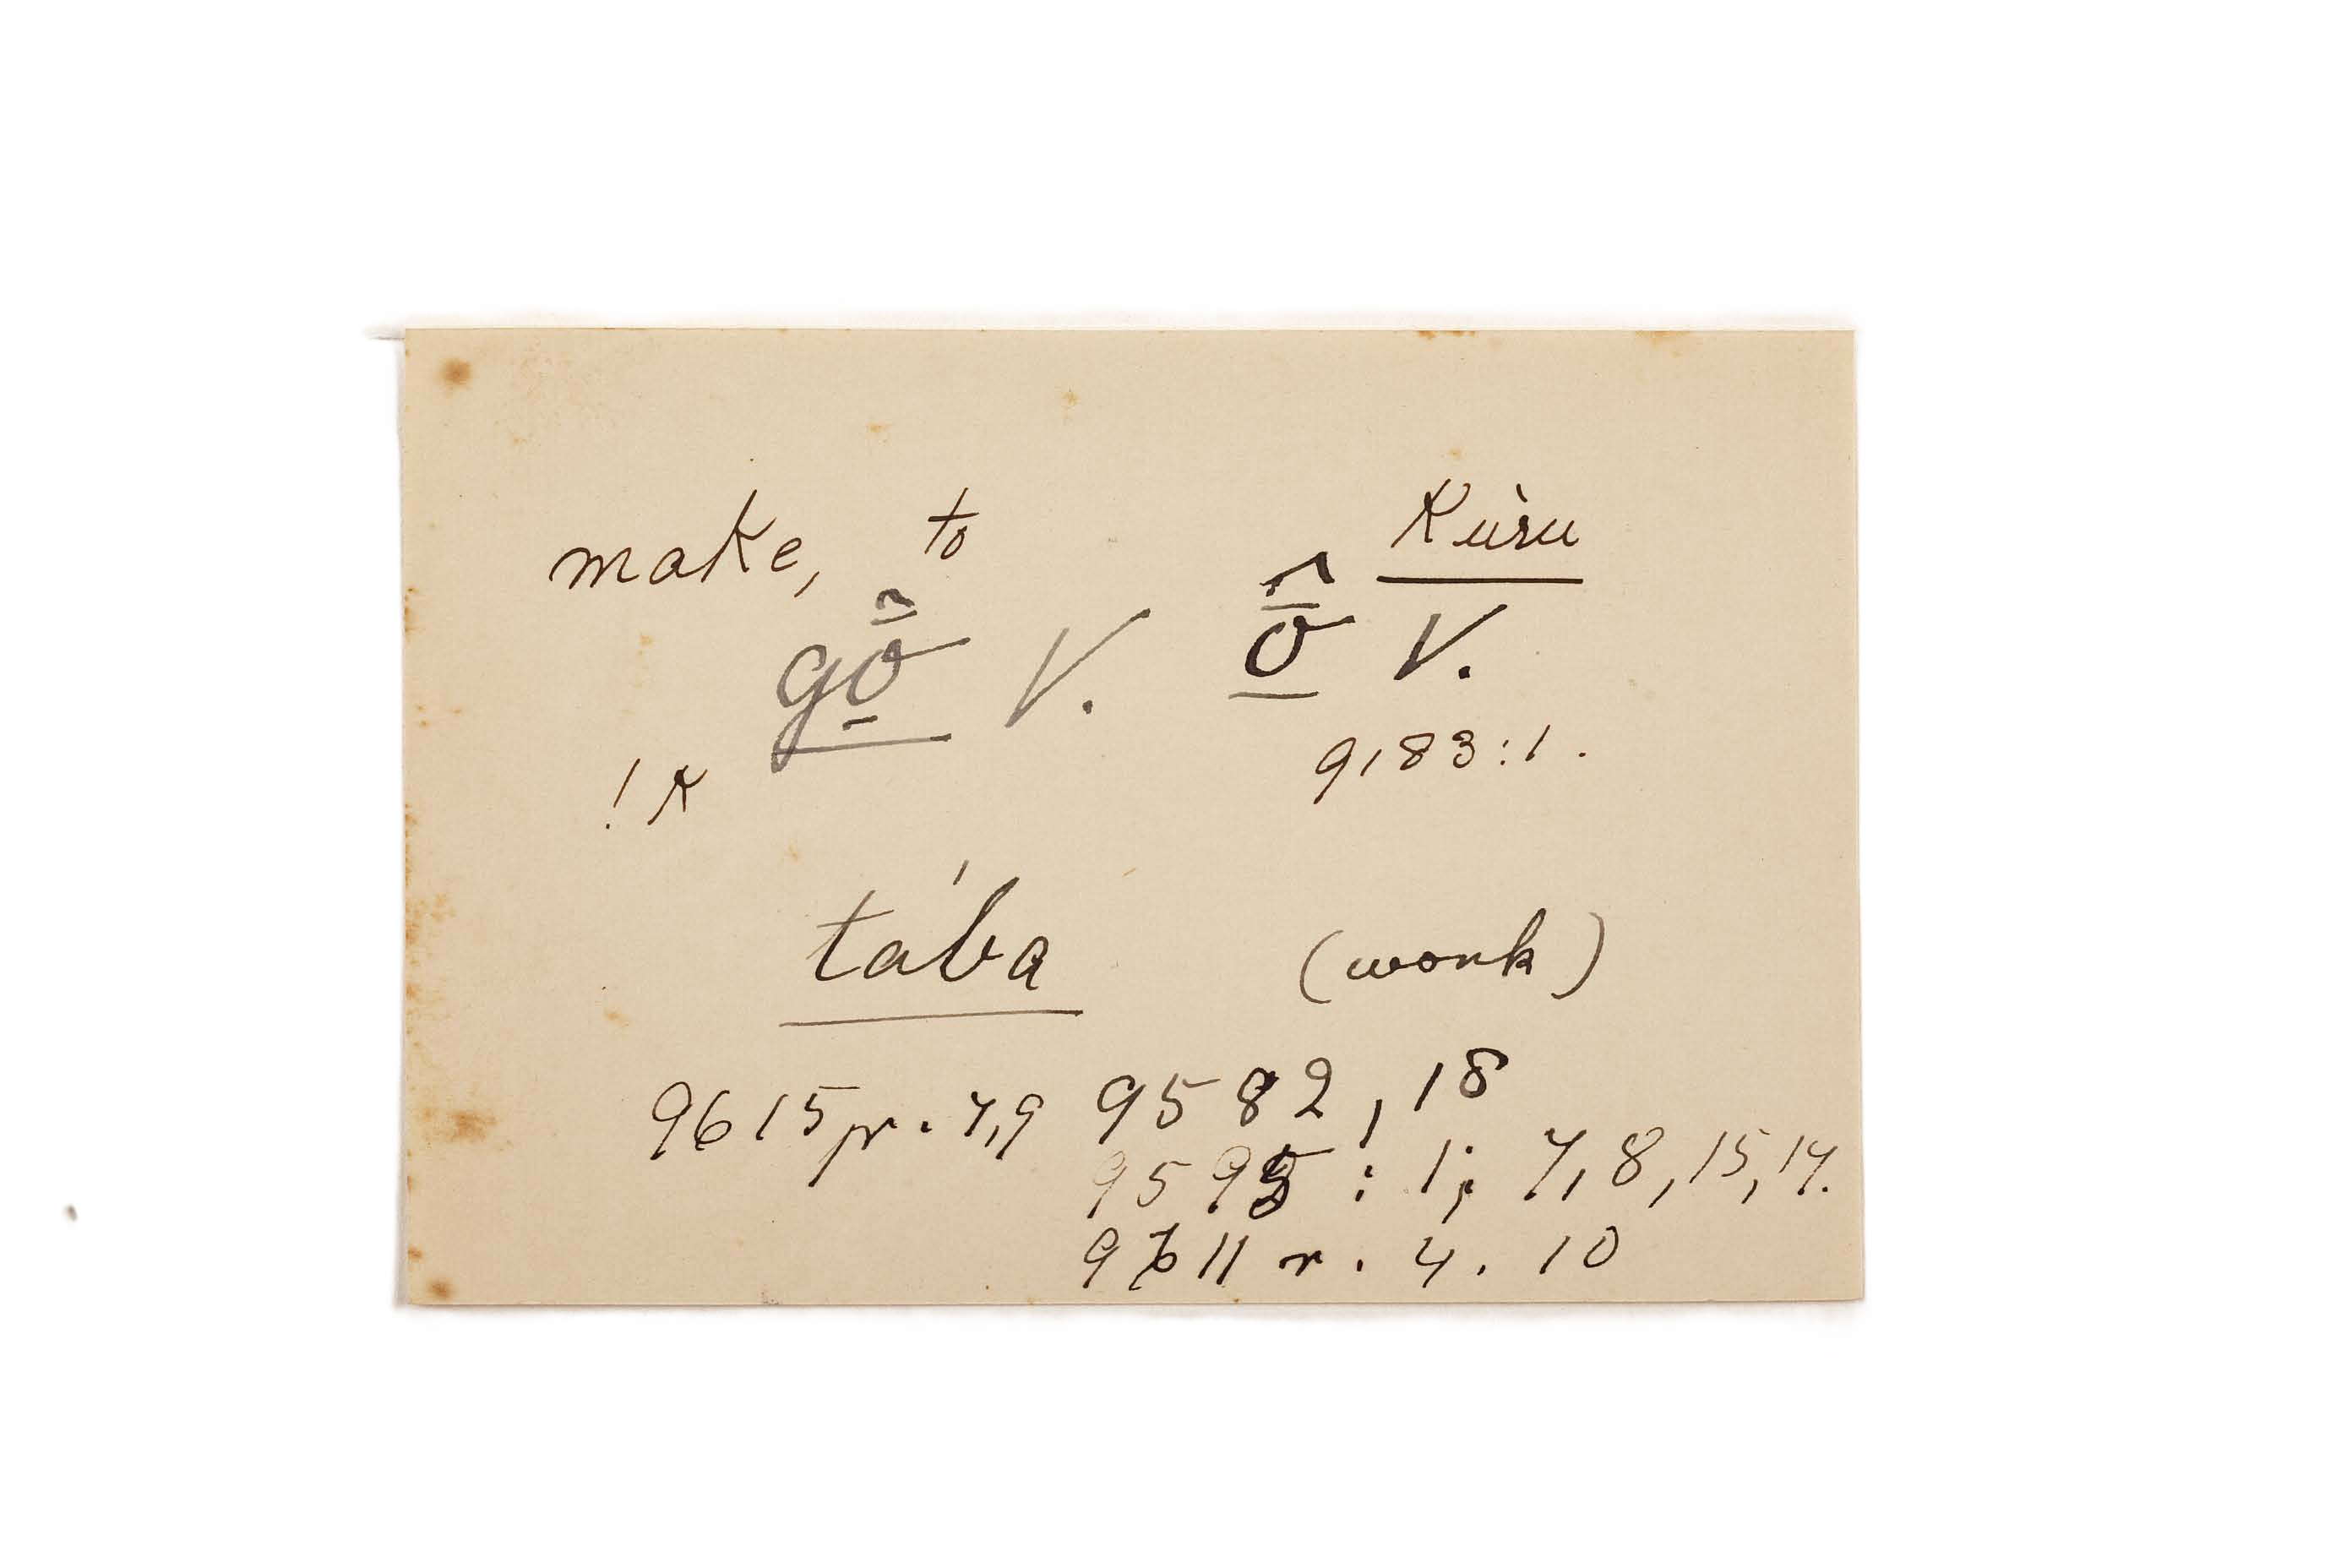 make, to Kùru
gō̱̑ V. ō̱̑ V.
!k 9183:1.
tába (work)
9615 r. 7,9 9582, 18
9595 : 1; 7, 8, 15, 17.
9611 r. 4. 10